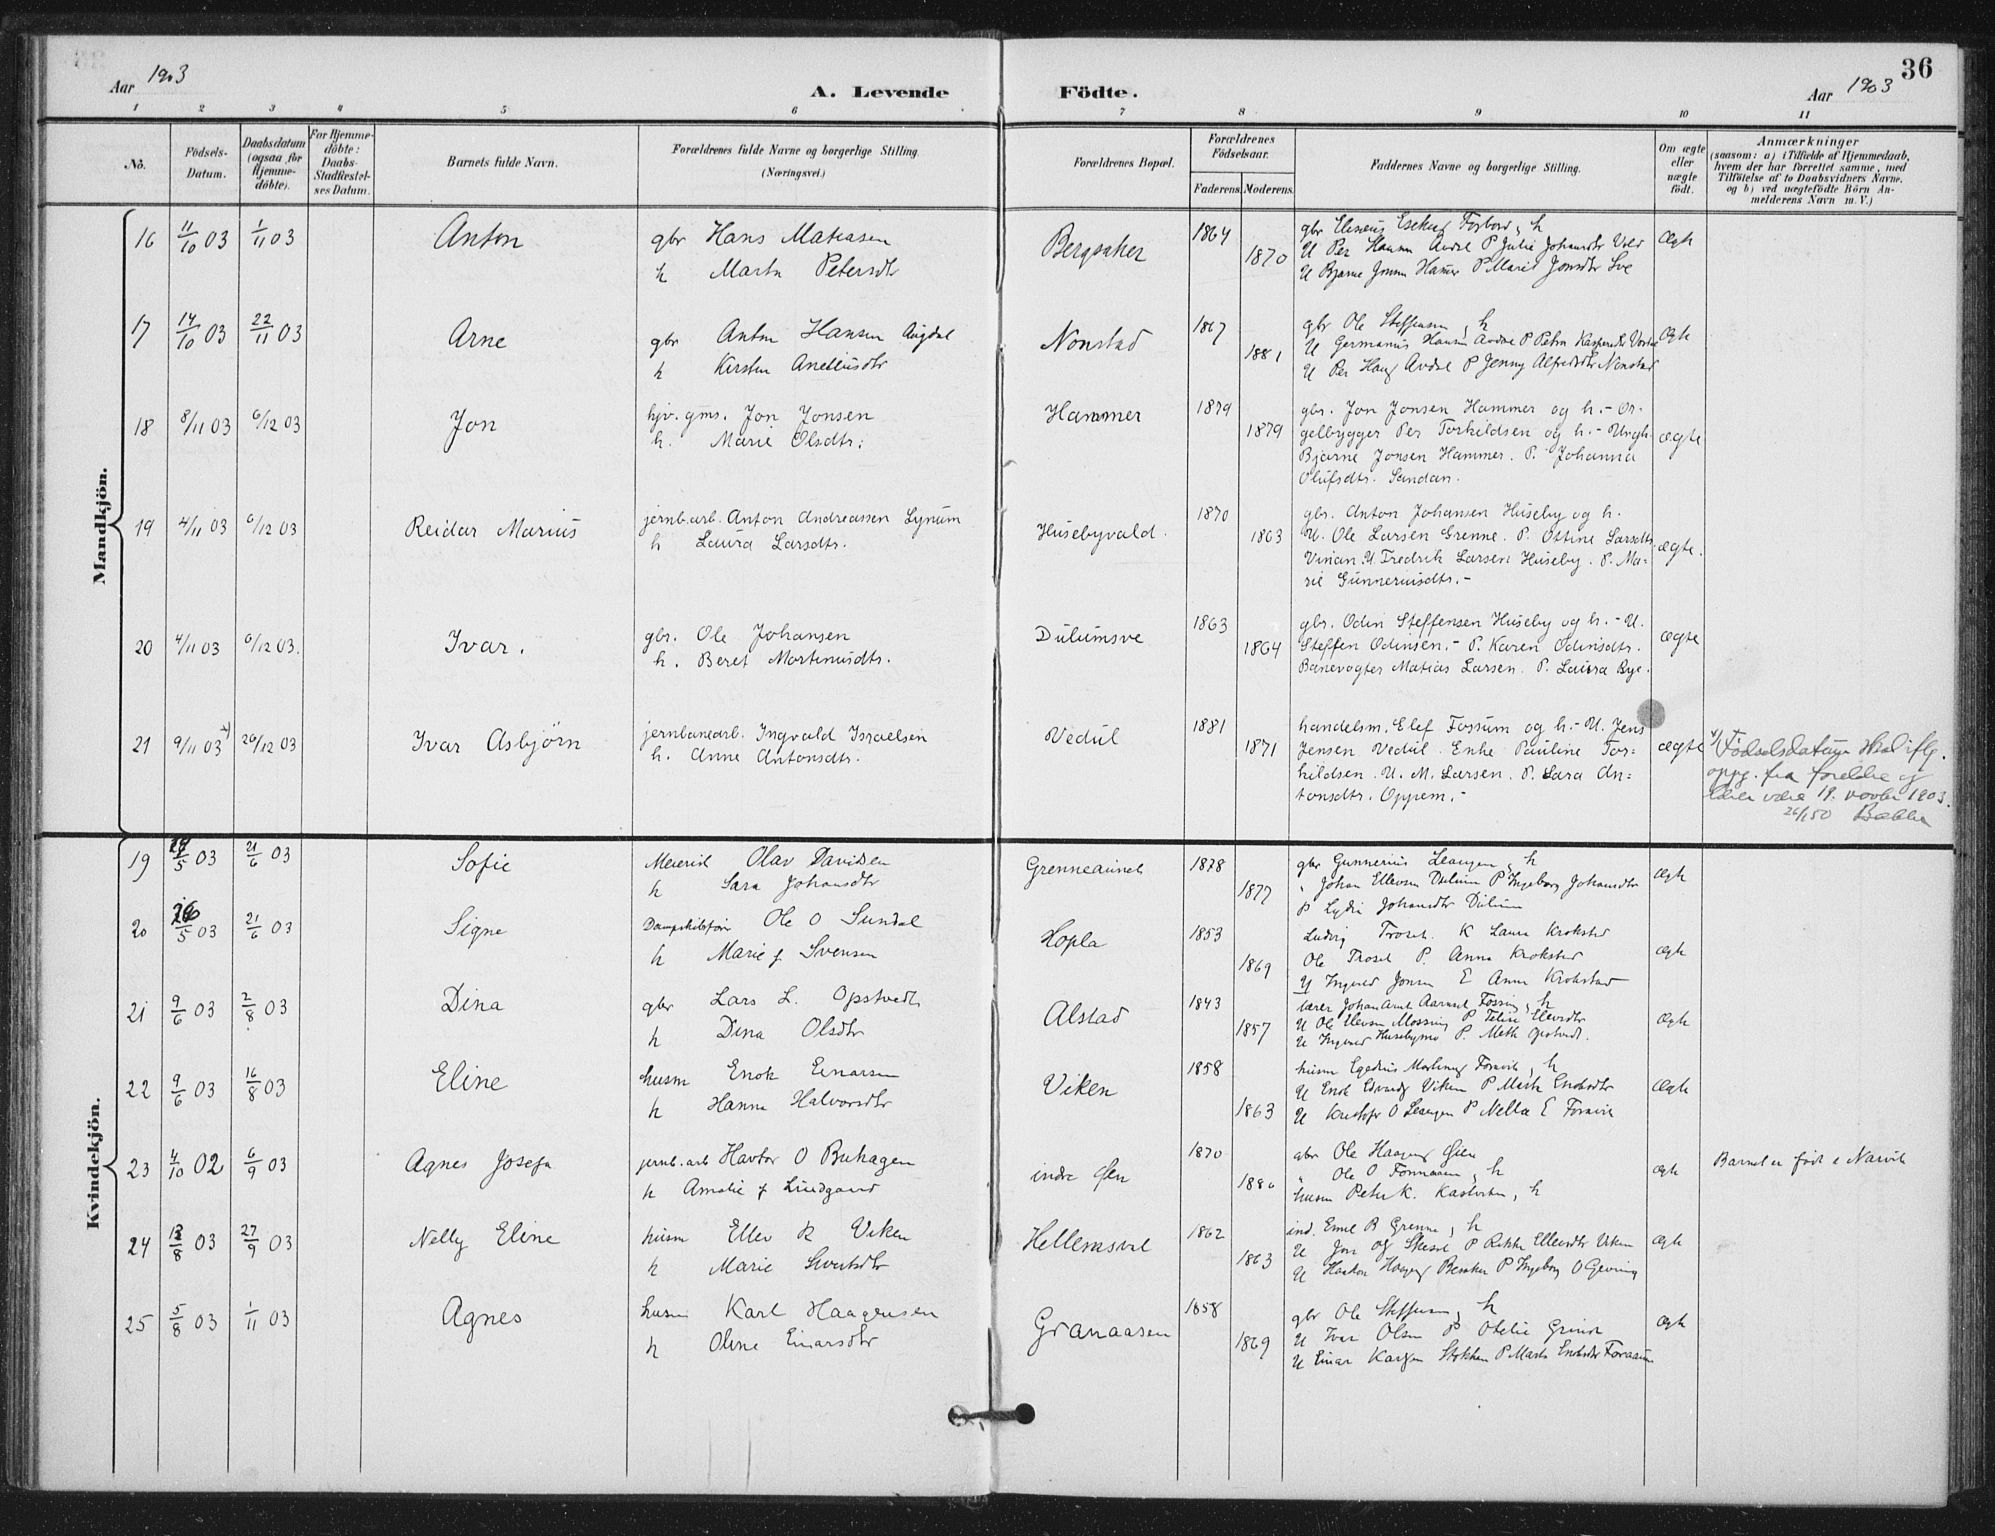 36
Aar 1903
A. Levende Födte.
Aar 1903
1 2 3 4 5 6 7 8 9 10 11
No.
Födsels-Datum.
Daabsdatum (ogsaa for Hjemme-döbte).
For Hjemme-döbte: Daabs-Stadfæstel-ses Datum.
Barnets fulde Navn.
Forældrenes fulde Navne og borgerlige Stilling. (Næringsvei.)
Forældrenes Bopæl.
Forældrenes Födselsaar.
Faderens. Moderens.
Faddernes Navne og borgerlige Stilling.
Om ægte eller uægte födt.
Anmærkninger
(saasom: a) i Tilfælde af Hjemmedaab,
hvem der har forrettet samme, med
Tilföielse af to Daabsvidners Navne.
og b) ved uægtefödte Börn An-
melderens Navn m. V.)
Mandkjön.
16 11/10 03 1/11 03 Anton gbr Hans Matiasen Bergsaker 1864 gbr Eliseus Esekiel Forbord, h Ægte
h Marta Petersdtr 1870 U Per Hansen Avdal P Julie Johansdtr Vold
U Bjarne Jonsen Hammer P Marit Jonsdtr Sve
17 14/10 03 22/11 03 Arne gbr Anton Hansen Nonstad 1867 gbr Ole Steffensen, h Ægte
h Kirsten Aneliusdtr 1881 U Germanus Hansen Avdal P Petra Kaspersdtr
U Per Haug Avdal P Jenny Alfredsdtr Nonstad
18 8/11 03 6/12 03 Jon hjv. gms. Jon Jonsen Hammer 1879 gbr. Jon Jonsen Hammer og h. - Or-
h. Marie Olsdtr. 1879 gelbygger Per Torkildsen og h. - Ungk. ægte
Bjarne Jonsen Hammer. P. Johanna
Olufsdtr. Sandan.
19 4/11 03 6/12 03 Reidar Marius jernb.arb. Anton Andreassen Lynum Husebyvald. 1870 gbr. Anton Johansen Huseby og h.
h Laura Larsdtr. 1863 U. Ole Larsen Grenne. P. Ottine Larsdtr. ægte.
Vinan. U. Fredrik Larsen Huseby. P. Ma-
rie Gunneriusdtr. -
20 4/11 03 6/12 03. Ivar. gbr. Ole Johansen Dulumsve 1863 gbr. Odin Steffensen Huseby og h. - U.
h. Beret Mortinusdtr. 1864 Steffen Odinsen. - P. Karen Odinsdtr. ægte
Banevogter Matias Larsen. P. Laura Bye.
21 9/11 03 26/12 03 Ivar Asbjörn jernbanearb. Ingvald Israelsen Vedul 1881 handelsm. Elef Fossum og h. - U. Jens
h. Anne Antonsdtr. 1871 Jensen Vedul. Enke Pauline Tor= ægte
kildsen. U. M. Larsen. P. Sara An=
tonsdtr. Oppem. -
Födselsdatum skal iflg.
oppg. fra foreldre og
være 19. novbr 1903.
26/1 50
Kvindekjön.
19 5 03 21/6 03 Sofie Meierist Olav Davidsen Grenneaunet 1878 gbr Gunnerius Leangen, h Ægte
h Sara Johansdtr 1877 " Johan Ellevsen Dulum P Ingeborg Johansdtr
P Lydia Johansdtr Dulum
20 26/5 03 21/6 03 Signe Ole O Sundal Hopla 1853 Ludvig Troset. K Laura Krokstad Ægte
h Marie f Svensen 1869 Ole Troset P. Anna Krokstad
U Ingvald Jonsen E Anna Krokstad
21 9/6 03 2/8 03 Dina gbr Lars L. Opstvedt Alstad 1843 lærer Johan Fossing, h Ægte
h Dina Olsdtr 1857 U Ole Elevsen Mossing P
U Ingvald Husebymo P. Opstvedt.
22 9/6 03 16/8 03 Eline husm Enok Einarsen Viken 1858 husm Egedius h Ægte
h Hanna Halvorsdtr 1863 U Enok Edvards Viken P Marta Enoksdtr
U Kristofer O Leangen P Nella E
23 4/10 02 6/9 03 Agnes Josefa jernb.arb Havtor O Buhagen indre Øien 1870 gbr Ole Haagens Øien Ægte Barnet er født i Narvik
h Amalie f Lindgaard " Ole O h
husm Peter K. h
24 8 03 27/9 03 Nelly Eline husm Ellev R Viken Hellemsval 1862 ind. Emil B Grenne, h Ægte
h Marie Sivertsdtr 1863 U Jon P Rikke Ellevsdtr Viken
U Haakon P Ingeborg O Geving
25 5/8 03 1/11 03 Agnes husm Karl Haagensen Granaasen 1858 gbr Ole Steffensen, h Ægte
h Oline Einarsdtr 1869 U Ivar Olsen P Otelie Grind
U Einar Stokkan P Marta Enoksdtr